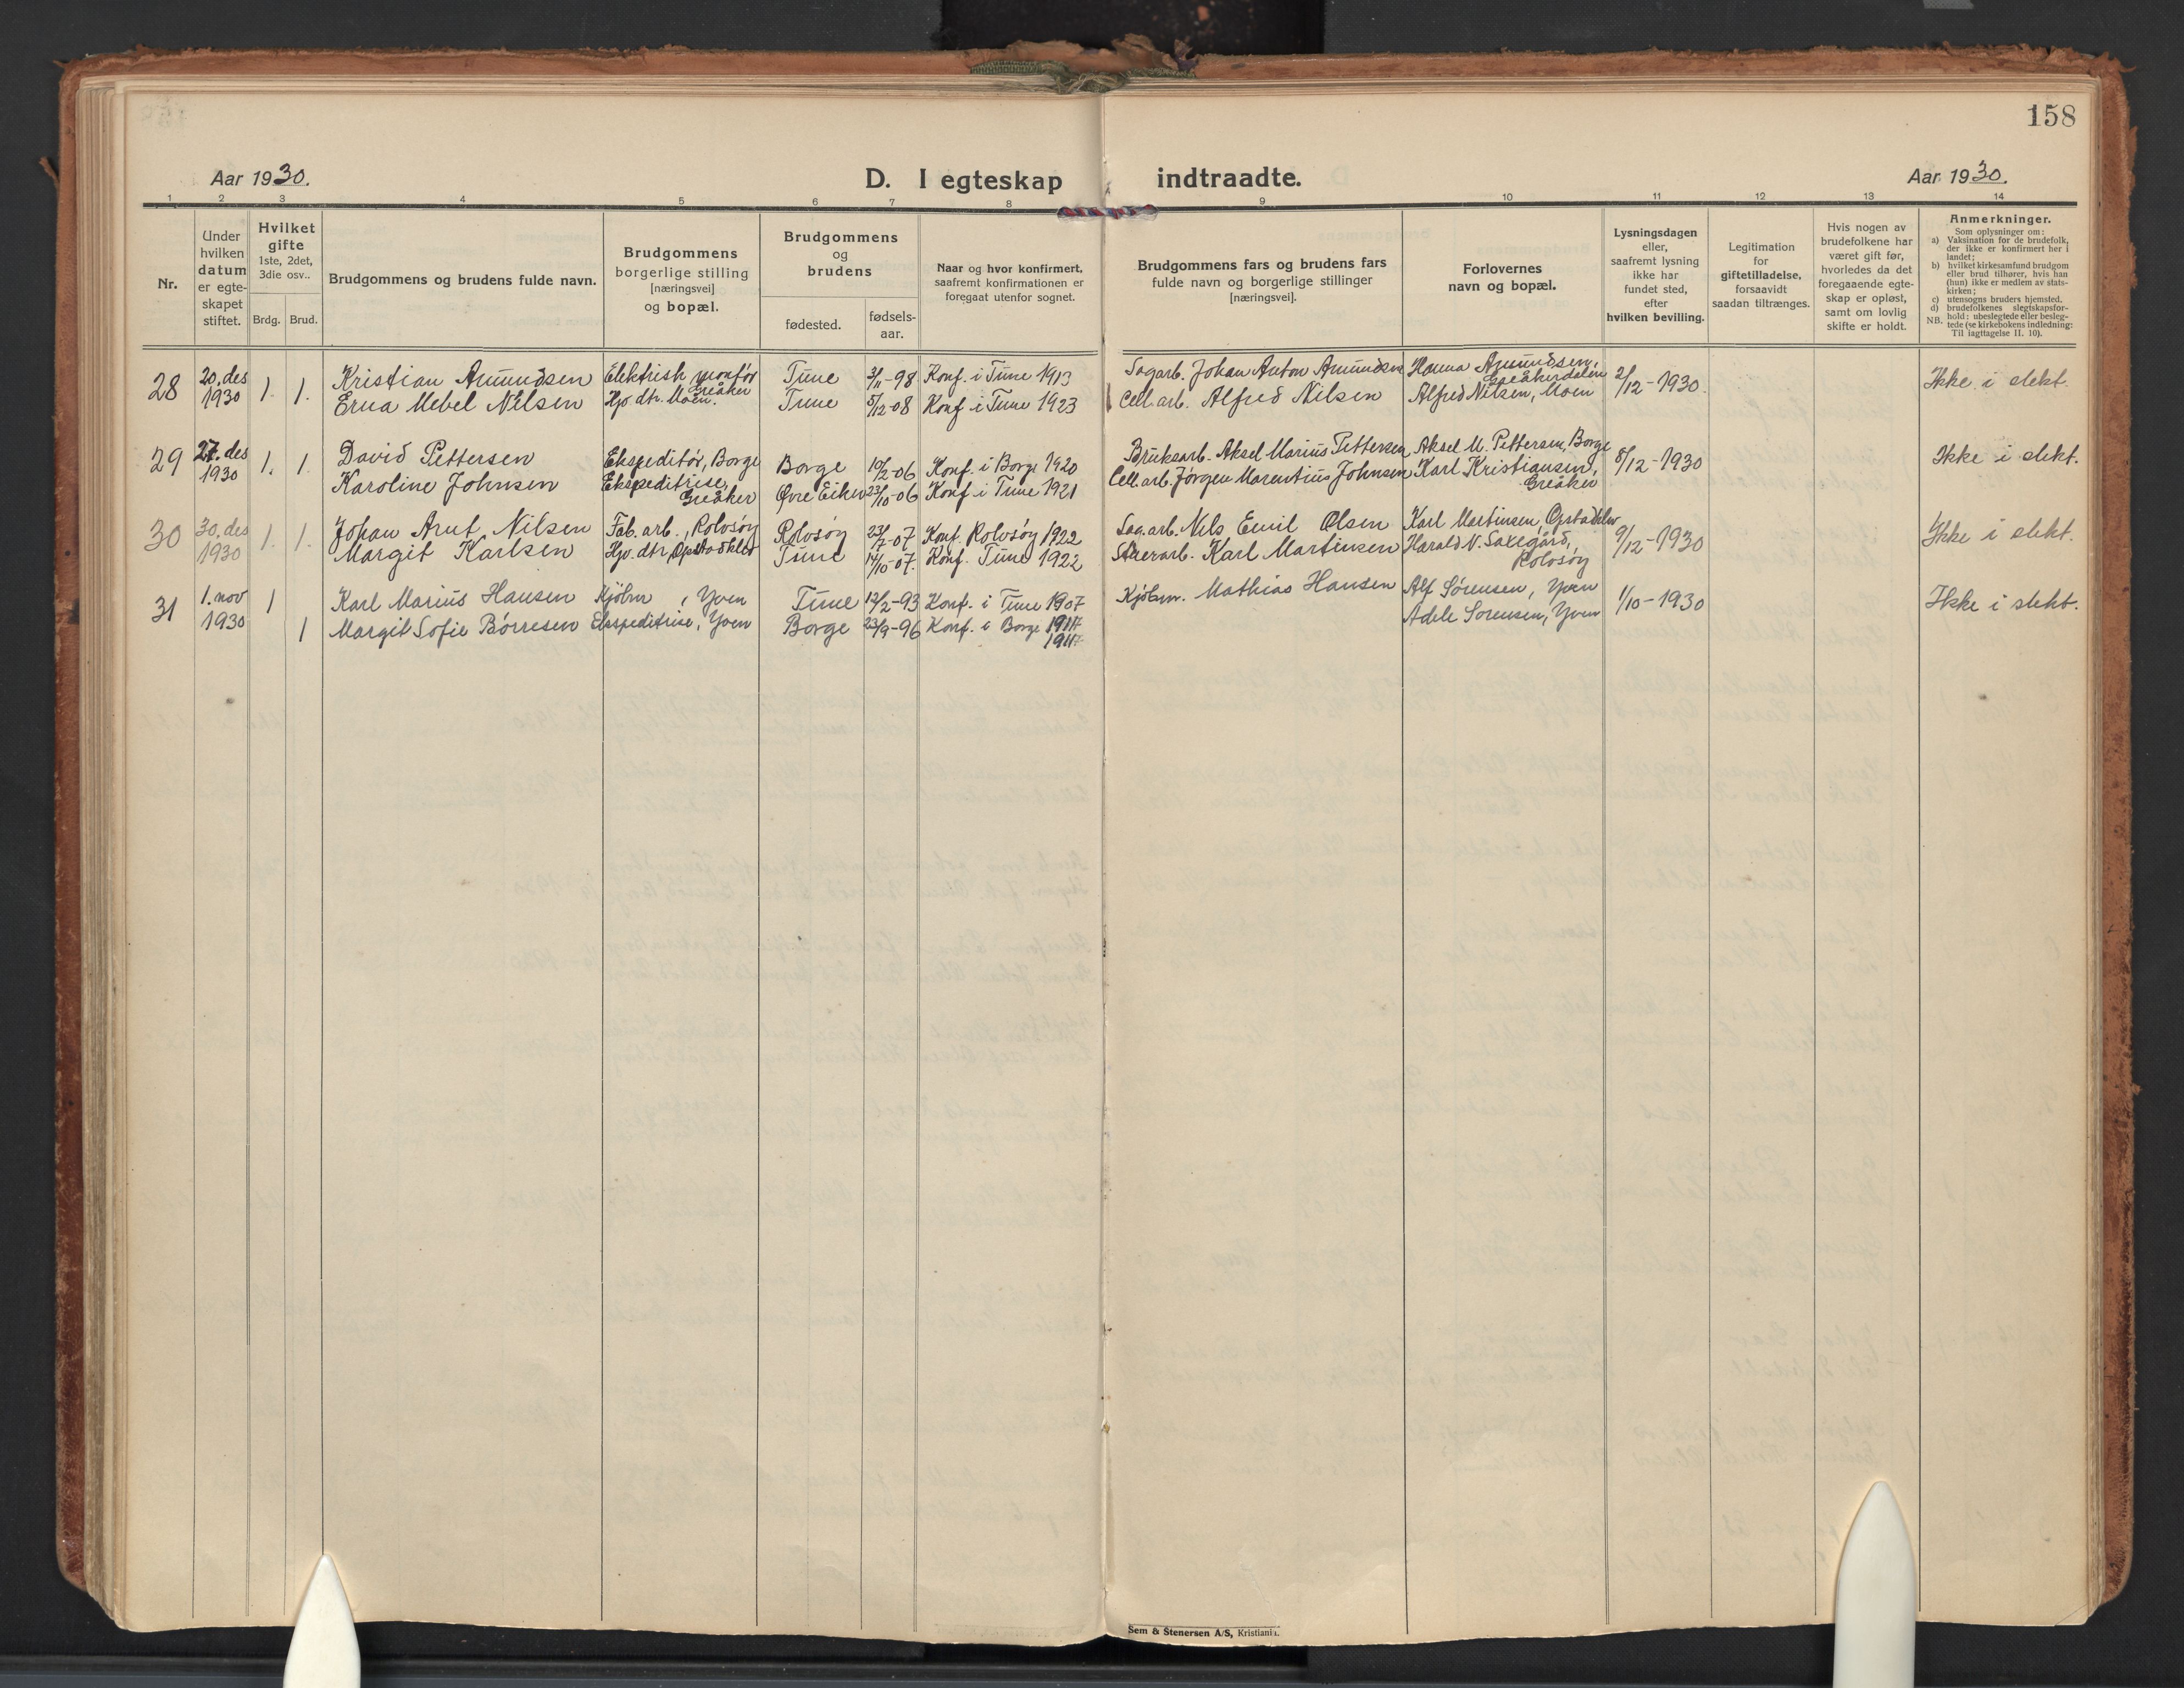 158
Aar 1930.
D. I egteskap indtraadte.
Aar 1930.
1 2 3 4 5 6 7 8 9 10 11 12 13 14
Nr.
Under hvilken datum er egte-skapet stiftet.
Hvilket gifte
1ste, 2det, 3die osv..
Brdg. Brud.
Brudgommens og brudens fulde navn.
Brudgommens
borgerlige stilling
[næringsvei]
og bopæl.
Brudgommens
og
brudens
fødested.
fødsels-aar.
Naar og hvor konfirmert,
saafremt konfirmationen er
foregaat utenfor sognet.
Brudgommens fars og brudens fars
fulde navn og borgerlige stillinger
[næringsvei].
Forlovernes
navn og bopæl.
Lysningsdagen
eller,
saafremt lysning
ikke har
fundet sted,
efter
hvilken bevilling.
Legitimation
for
giftetilladelse,
forsaavidt
saadan tiltrænges.
Hvis nogen av
brudefolkene har
været gift før,
hvorledes da det
foregaaende egte-
skap er opløst,
samt om lovlig
skifte er holdt.
Anmerkninger.
Som oplysninger om:
a) Vaksination for de brudefolk,
der ikke er konfirmert her i
landet;
b) hvilket kirkesamfund brudgom
eller brud tilhører, hvis han
(hun) ikke er medlem av stats-
kirken;
c) utensogns bruders hjemsted.
d) brudefolkenes slegtskapsfor-
hold: ubeslegtede eller besleg-
NB. tede (se kirkebokens indledning:
Til iagttagelse II. 10).
28 20. des 1930 1. 1. Kristian Amundsen Elektrisk montør Greåker Tune 3/11-98 Konf. i Tune 1913 Sagarb. Johan Anton Amundsen Hanna Amundsen, Greåkerdalen 2/12-1930. Ikke i slekt.
Erna Mebel Nilsen Hjv dtr. Moen. Tune 5/12-08 Konf i Tune 1923 Cell. arb. Alfred Nilsen Alfred Nilsen, Moen
29 27. des 1930 1. 1 David Pettersen Ekspeditør, Borge Borge 10/2-06 Konf. i Borge 1920 Bruksarb. Aksel Marius Pettersen Aksel M. Pettersen, Borge 8/12-1930 Ikke i slekt.
Karoline Johnsen Ekspeditrise, Greåker Øvre Eiker 23/10-06 Konf i Tune 1921 Cell. arb. Jørgen Marentius Johnsen Karl Kristiansen, Greåker
30 30. des 1930 1. 1. Johan Arnt Nilsen Fab. arb., Rolvsøy Rolvsøy 23/7-07 Konf. Rolvsøy 1922 Sag. arb. Nils Emil Olsen Karl Martinsen, Opstadelv 9/12-1930 Ikke i slekt.
Margit Karlsen Hjv. dtr, Tune 14/10-07. Konf. Tune 1922 Karl Martinsen Harald N. Saxegård, Rolvsøy
31 1. nov 1930 1 Karl Marius Hansen Kjøbm, Yven Tune 12/2-93 Konf. i Tune 1907 Kjøbm. Mathias Hansen Alf Sørensen, Yven 1/10-1930 Ikke i slekt.
1 Margit Sofie Børresen Ekspeditrise, Yven Borge 23/9-96 Konf. i Borge Adele Sørensen, Yven
Sem & Stenersen A/S, Kristiania.